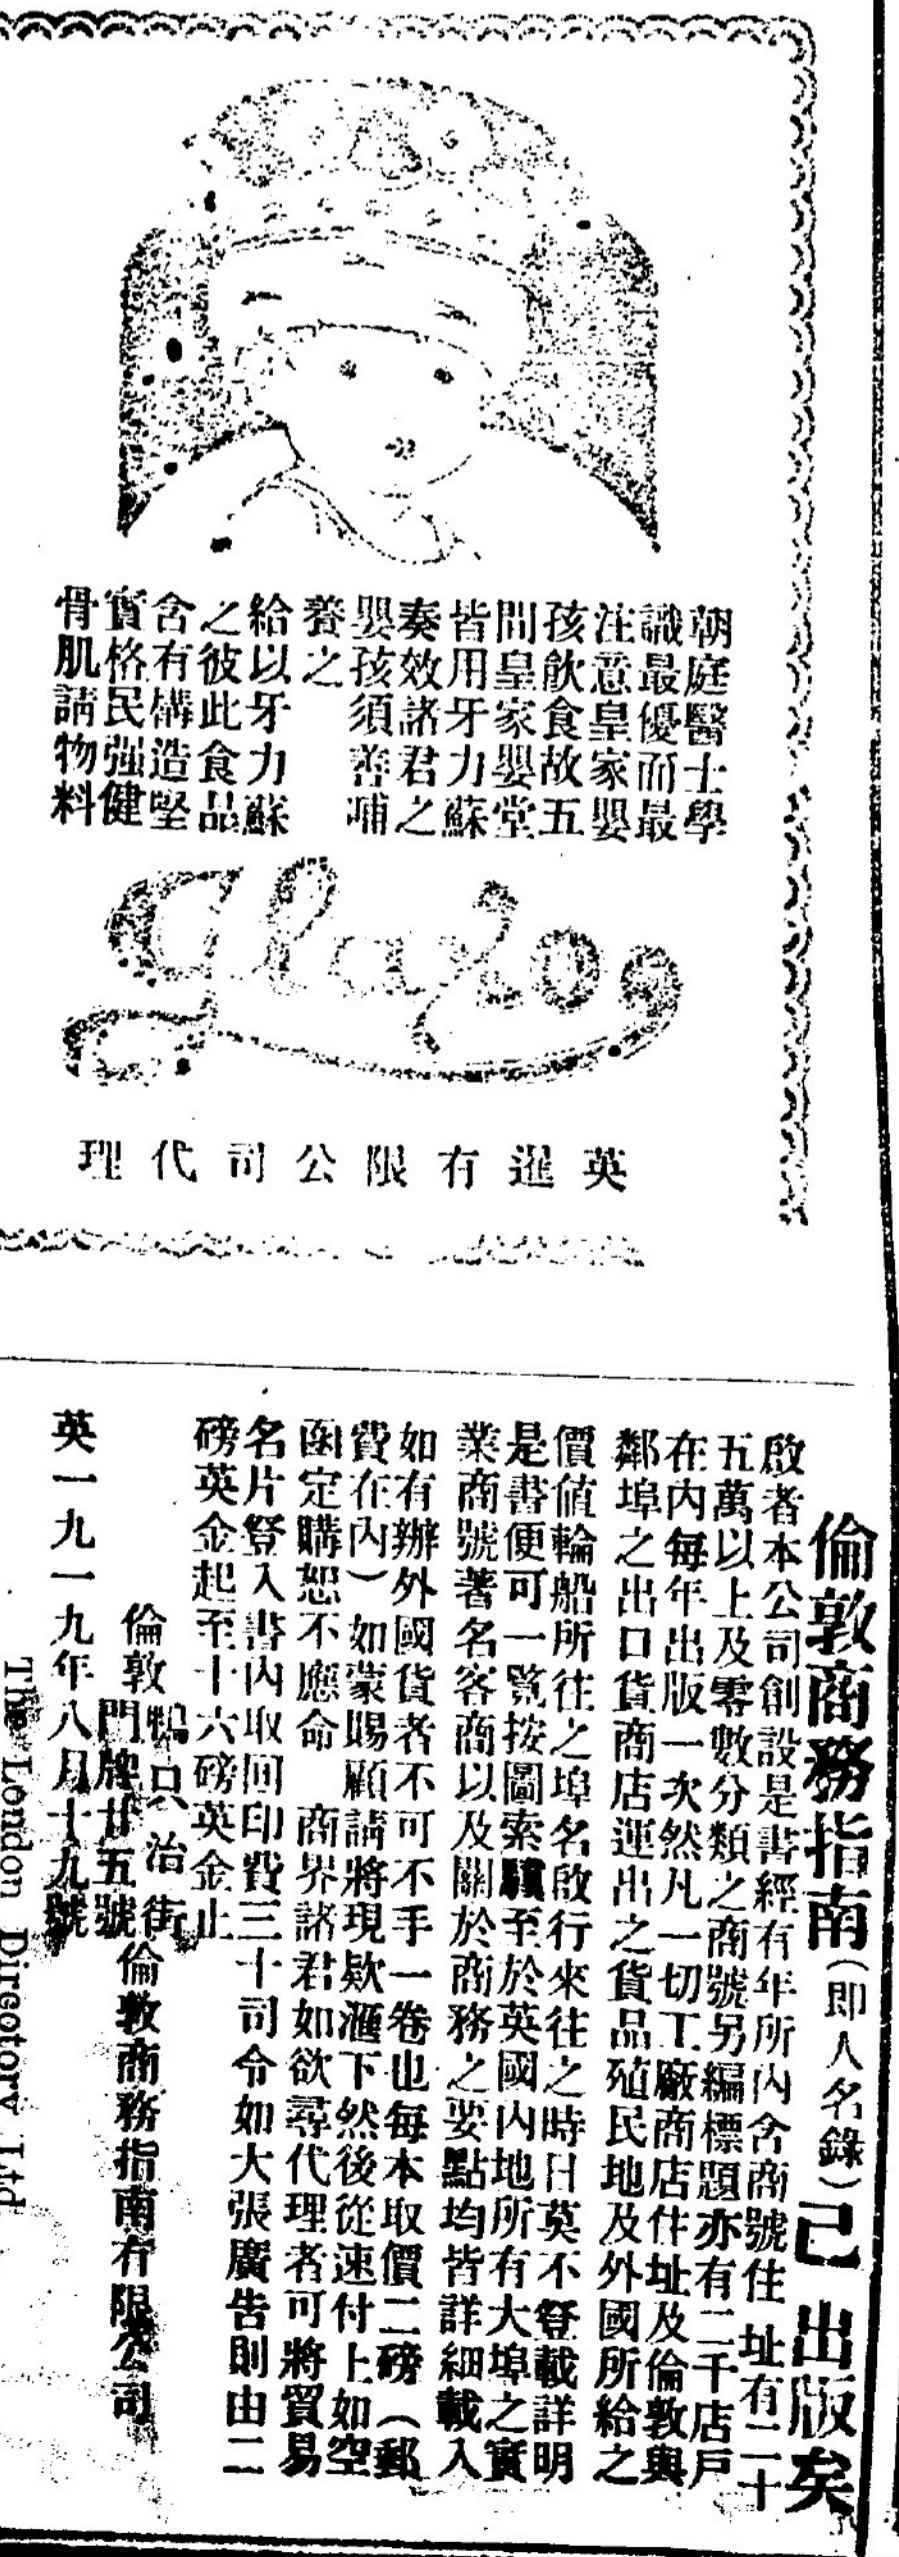 朝庭醫士學
識最優而最
注意皇家嬰
孩飲食故五
間皇家嬰堂
皆用牙力蘇
奏效諸君之
嬰孩須善哺
養之
給以牙力蘇
之彼此食品
含有構造堅
實格民强健
骨肌請物料
Glaxo
英暹有限公司代理
倫敦商務指南(即人名錄)已出版矣
啟者本公司創設是書經有年所內含商號住址有二十
五萬以上及零數分類之商號另編標題亦有二千店戶
在內每年出版一次然凡一切工廠商店住址及倫敦與
鄰埠之出口貨商店運出之貨品殖民地及外國所給之
價值輪船所往之埠名啟行來往之時日莫不登載詳明
是書便可一覽按圖索驥至於英國內地所有大埠之實
業商號著名客商以及關於商務之要點均皆詳細載入
如有辦外國貨者不可不手一卷也每本取價二磅(郵
費在內)如蒙賜顧請將現欵滙下然後從速付上如空
函定購恕不應命 商界諸君如欲尋代理者可將貿易
名片登入書內取回印費三十司令如大張廣告則由二
磅英金起至十六磅英金止
倫敦鴨只治街門牌廿五號倫敦商務指南有限公司
英一九一九年八月十九號
The London Directory Ltd